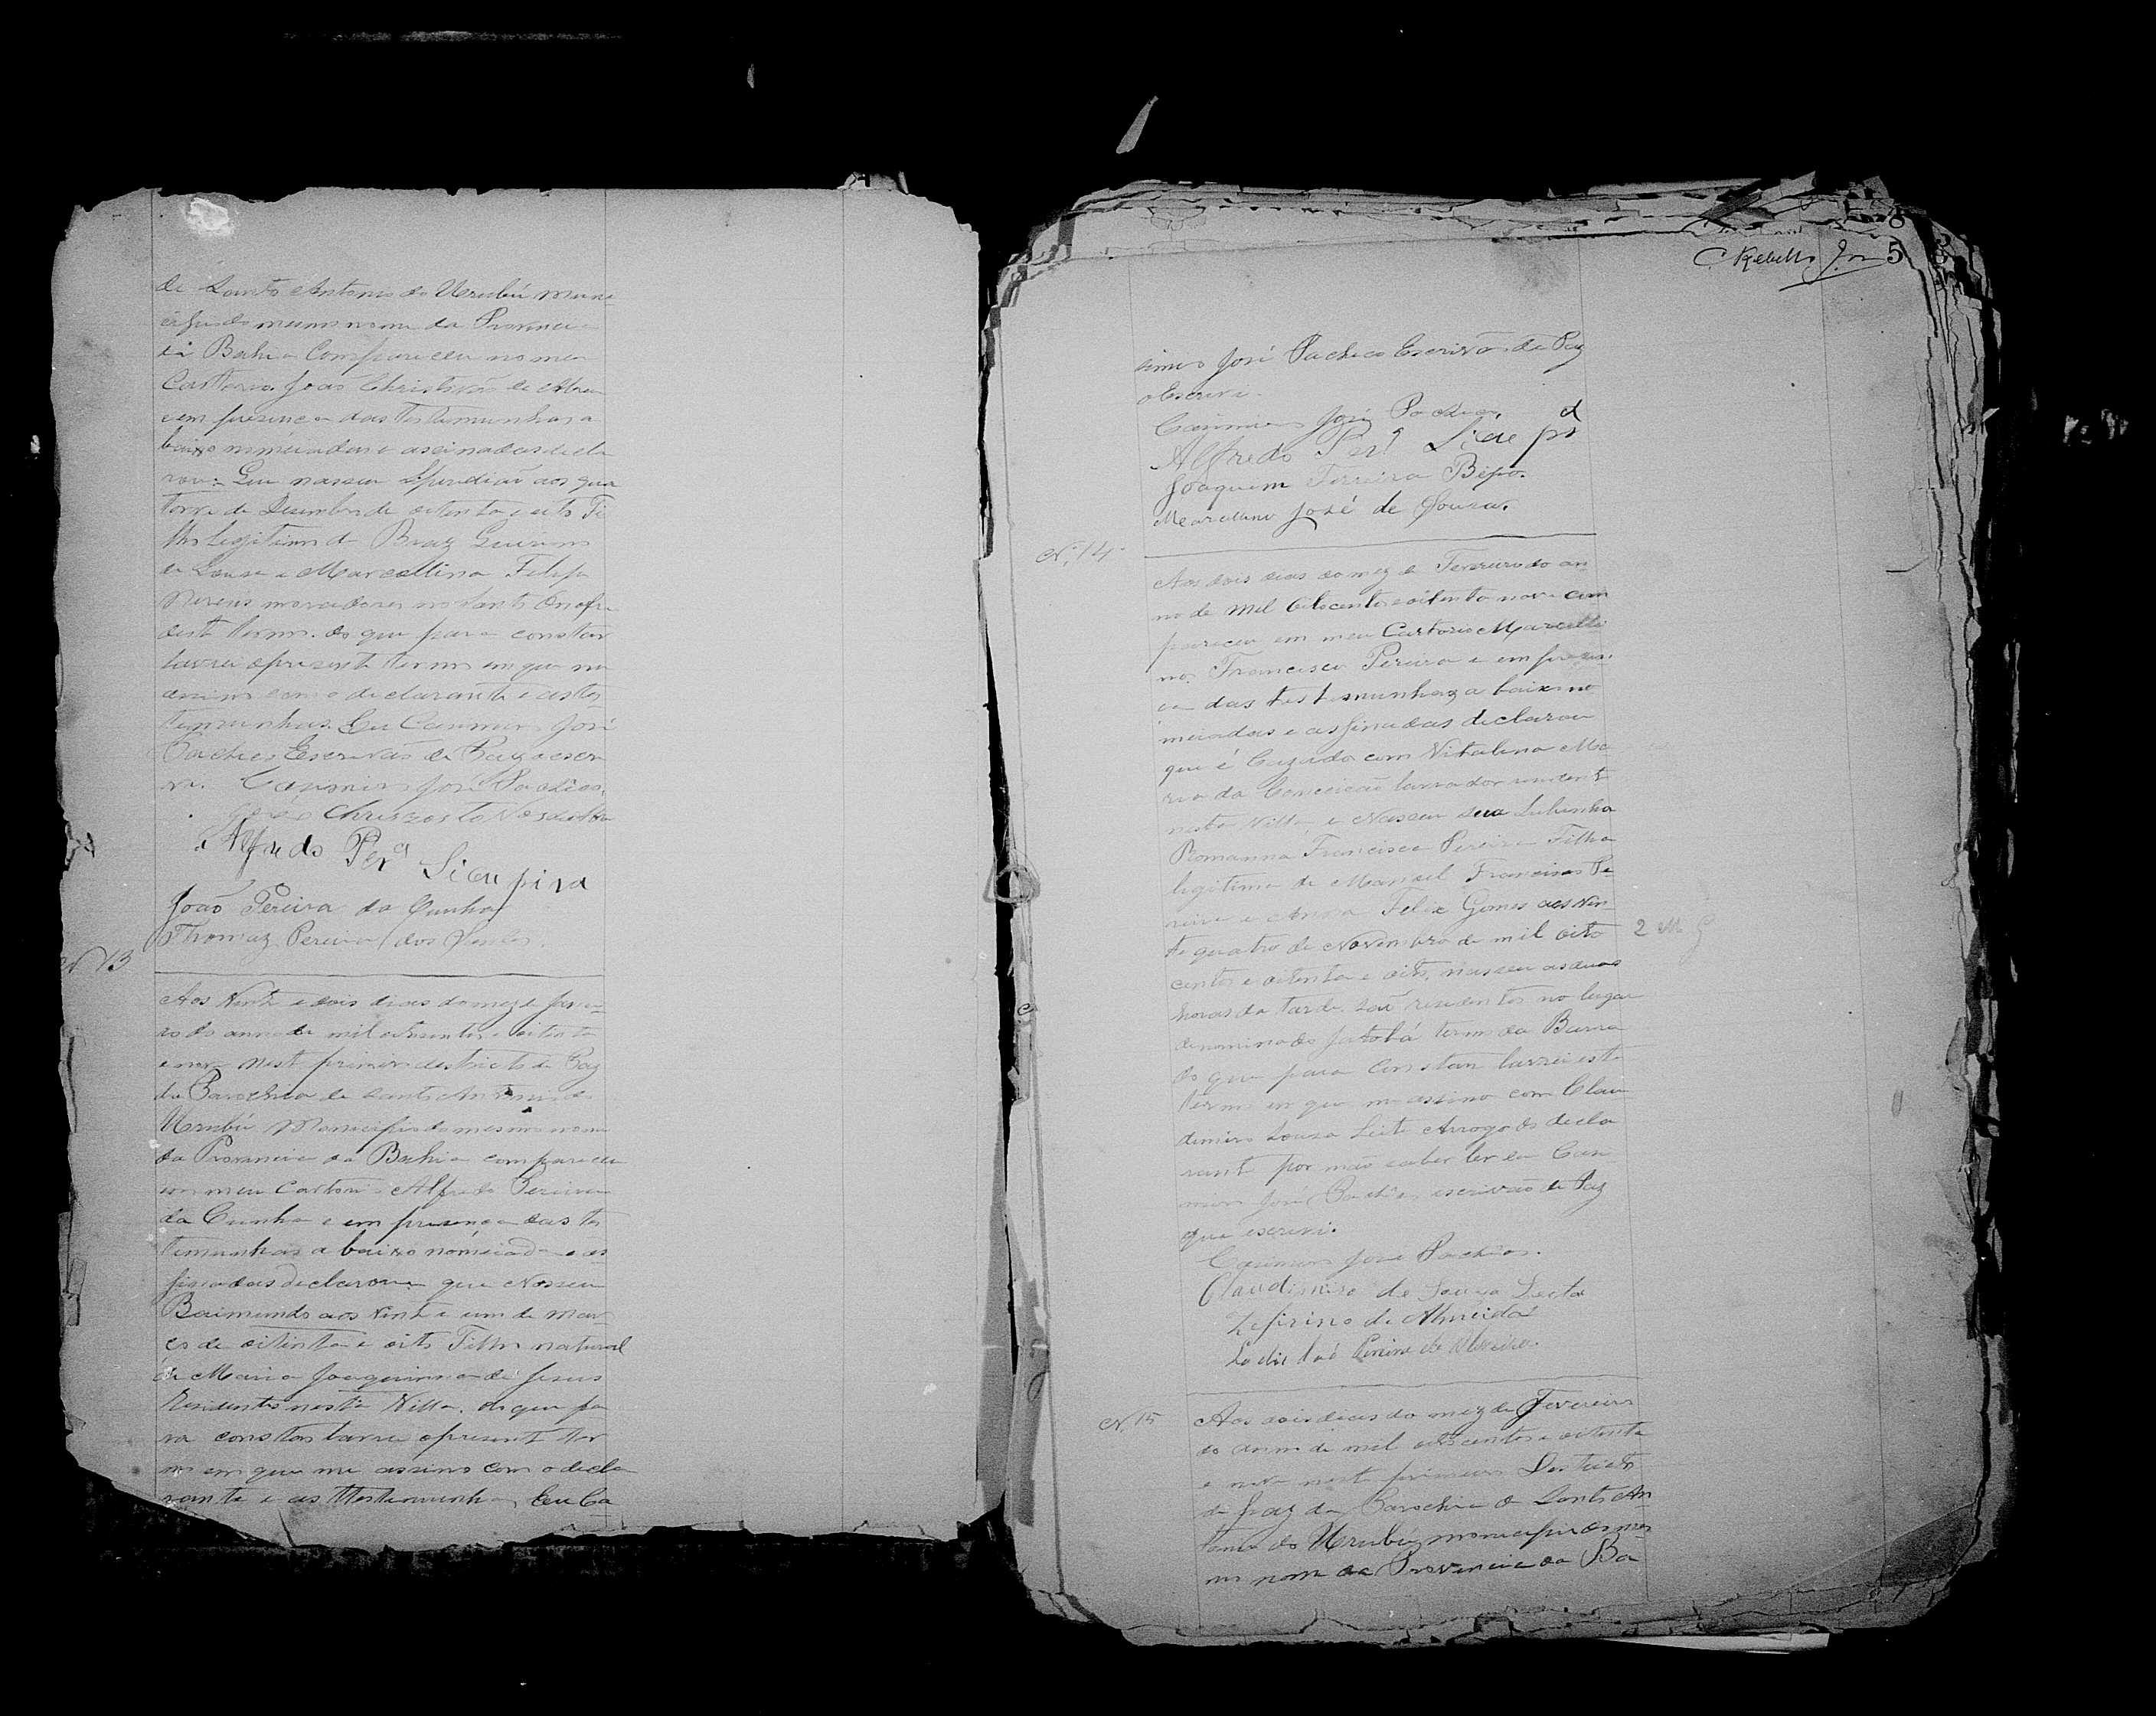 de Santo Antonio do Urubú muni
cipio do mesmo nome da Provincia
da Bahia Compareceu no meu
Cartorio João Christovão de
e em presença das testemunhas a
baixo nomeiadas e assinadas decla
rou: Que nasceu Espiridião aos qua
torze de Desembro de oitenta e oito Fi
lho legitimo de Braz
de Sousa e Marcellina Felipa
moradores no Santo Onofre
deste termo. do que para constar
lavrei o presente termo em que me
assino com o declarante e as tes
temunhas. Eu Casimiro José
Pacheco Escrivão de Paz o escre
vi. Casimiro José Pacheco.
Alfredo Perª Sicupira
João Pereira da Cunha
Thomaz Pereira dos Santos.
N 13
Aos Vinte e dois dias do mez de Janei
ro do anno de mil oitocentos e oitenta
e nove neste primeiro destricto de Paz
da Parochia de Santo Antonio do
Urubú Municipio do mesmo nome
da Provincia da Bahia compareceu
em meu Cartorio Alfredo Pereira
da Cunha e em presença das tes
temunhas a baixo nomeiadas e as
sinadas declarou que Nasceu
Raimundo aos Vinte e um de Mar
ço de oitenta e oito Filho natural
de Maria Joaquina de Jesus
Residentes nesta Villa. do que pa
ra constar lavrei o presente ter
mo em que me assino com o decla
rante e as testemunhas, Eu Ca
C. Rebello Jor 5
8
simiro José Pacheco Escrivão de Paz
o Escrevi.
Casimiro José Pacheco.
Alfredo Perª Sicupª
Joaquim Ferreira Bispo.
Marcellino José de Souza.
N. 14
Aos dois dias do mez de Fevreiro do an
no de mil Oitocentos e oitenta nove com
pareceu em meu Cartorio Marcelli
no Francisco Pereira e em presen
ça das testemunhaz a baixo no
meiadas e assinadas declarou
que é Cazado com Vitalina Ma
ria da Conceicão lavrador rendente
nesta Villa, e Nasceu sua Subrinha
Romanna Francisca Pereira Filha
legitima de Manoel Francisco Pe
reira e Anna Felix Gomes aos Vin
te quatro de Novembro de mil oito
centos e oitenta e oito, nasceu as duas
horas da tarde. são residentes no lugar
denominado Jatobá termo da Barra
do que para constar lavrei este
termo em que me assino com Clau
dimiro Souza Leite Arrogo do decla
rante por não saber ler eu Casi
miro José Pacheco escrivão de Paz
que escrevi.
2 M G
Casimiro José Pacheco.
Claudimiro de Souza Leite
Zefirino de Almeida
N. 15
Aos dois dias do mez de Fevereiro
do anno de mil oitocentos e oitenta
e nove neste primeiro Destricto
de paz da Parochia de Santo An
tonio do Urubú municipio do mes
mo nome da Provincia da Ba